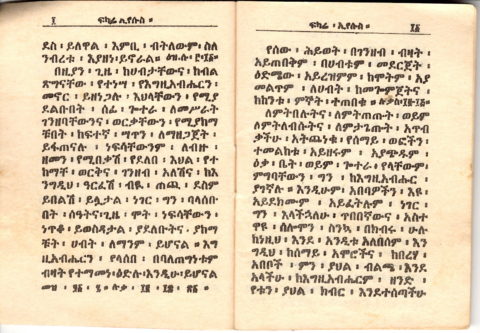 ፲ ፍካሬ ኢየሱስ ።
ደስ ፡ ይለዋል ፡ እምቢ ፡ ብትለውም ፡ ስለ
ንብረቱ ፡ እያዘነ ፡ ይኖራል ።
በዚያን ፡ ጊዜ ፡ ከሀብታቸውና ፡ ከብል
ጽግናቸው ፡ የተነሣ ፡ የእግዚአብሔርን ፡
መኖር ፡ ይዘነጋሉ ፡ እህላቸውን ፡ የሚያ
ደልቡበት ፡ ሰፊ ፡ ጐተራ ፡ ለመሥራት ፡
ገንዘባቸውንና ፡ ወርቃቸውን ፡ የሚያከማ
ቹበት ፡ ከፍተኛ ፡ ሣጥን ፡ ለማዘጋጀት ፡
ይፋጠናሉ ፡ ነፍሳቸውንም ፡ ለብዙ ፡
ዘመን ፡ የሚበቃሽ ፡ የደለበ ፡ እህል ፡ የተ
ከማቸ ፡ ወርትና ፡ ገንዘብ ፡ አለሽና ፡ ከእ
ንግዲህ ፡ ዓርፈሽ ፡ ብዪ ፡ ጠጪ ፡ ደስም
ይበልሽ ፡ ይሏታል ፡ ነገር ፡ ግን ፡ ባላሰቡ
በት ፡ ሰዓትና ፡ ጊዜ ፡ ሞት ፡ ነፍሳቸውን ፡
ነጥቆ ፡ ይወስዳታል ፡ ያደለቡትና ፡ ያከማ
ቹት ፡ ሀብት ፡ ለማንም ፡ ይሆናል ። እግ
ዚአብሔርን ፡ የላሰበ ፡ በባለጠግነቱም
ብዛት የተማመነ ፡ ዕድሉ ፡ እንዲሁ ፡ ይሆናል
ፍካሬ ፡ ኢየሱስ ። ፲፩
የሰው ፡ ሕይወት ፡ በገንዘብ ፡ ብዛት ፡
አይጠበቅም ፡ በሀብቱም ፡ መደርጀት ፡
ዕድሜው ፡ አይረዝምም ፡ ከሞትም ፡ አያ
መልጥም ፡ ለሀብት ፡ ከመጐምጀትና ፡
ከከንቱ ፡ ምኞት ፡ ተጠበቁ ።
ለምትበሉትና ፡ ለምትጠጡት ፡ ወይም
ለምትለብሱትና ፡ ለምታጌጡት ፡ አጥብ
ቃችሁ ፡ አትጨነቁ ፡ የሰማይ ፡ ወፎችን ፡
ተመልከቱ ፡ አይዘሩም ፡ አያጭዱም ፡
ዕቃ ፡ ቤት ፡ ወይም ፡ ጐተራ ፡ የላቸውም
ምግባቸውን ፡ ግን ፡ ከእግዚአብሔር ፡
ያገኛሉ ። እንዲሁም ፡ አበባዎችን ፡ እዩ
አይደክሙም ፡ አይፈትሉም ፡ ነገር ፡
ግን ፡ እላችኋለሁ ፡ ጥበበኛውና ፡ አስተ
ዋዩ ፡ ሰሎሞን ፡ ስንኳ ፡ በክብሩ ፡ ሁሉ
ከነዚህ ፡ እንደ ፡ አንዲቱ አልለበሰም ፡ እን
ግዲህ ፡ ከሰማይ ፡ አሞሮችና ፡ ከበረሃ
አበቦች ፡ ምን ፡ ያህል ፡ ብልጫ ፡ እንደ
አላችሁ ፡ ከእግዚአብሔርም ፡ ዘንድ ፡
የቱን ፡ ያህል ፡ ክብር ፡ እንደተሰጣችሁ